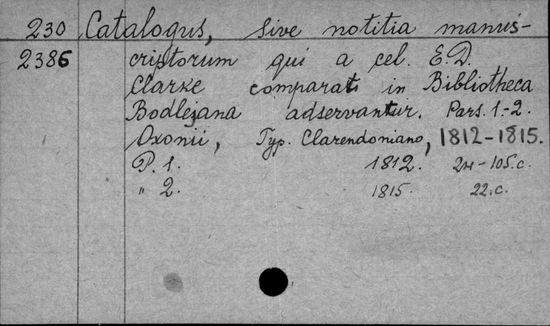 230 Catalogus, sive notitia manus-
2386 criptorum qui a cel. E.D.
Clarke comparati in Bibliotheca
Bodlejana adservantur. Pars. 1.-2.
Oxonii, Typ. Clarendoniano, 1812-1815.
P. 1. 1812. 2н-105.c.
" 2. 1815. 22.c.